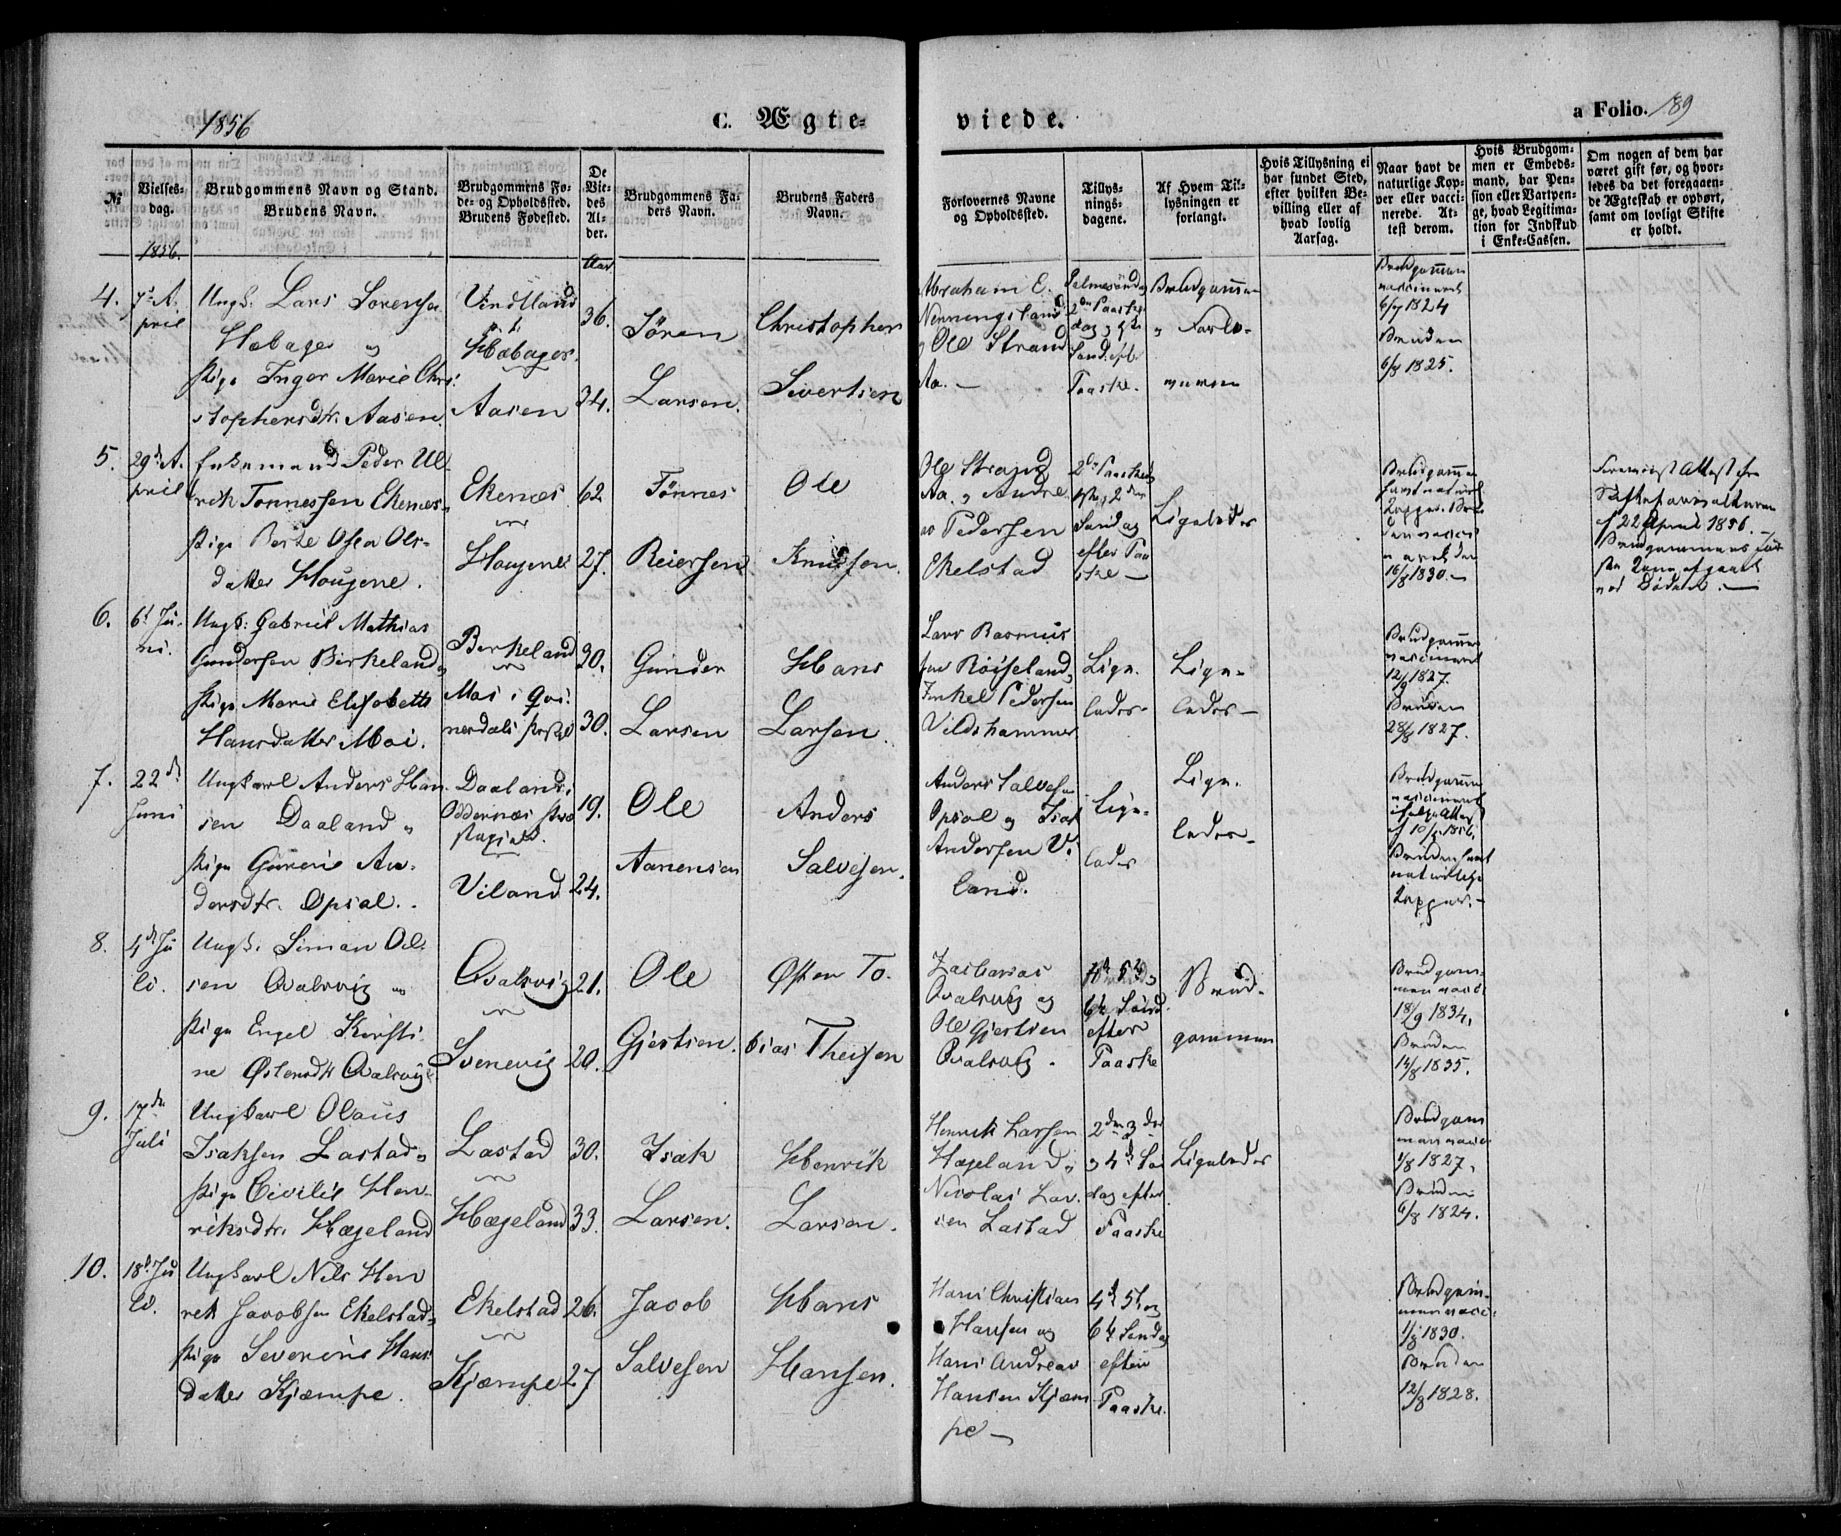 1856
C. Ægte-
viede.
a Folio. 189
№
Vielses-
dag.
Brudgommens Navn og Stand.
Brudens Navn.
Brudgommens Fø-
de- og Opholdsted.
Brudens Fødested.
De
Vie-
des
Al-
der.
Brudgommens Fa-
ders Navn.
Brudens Faders
Navn.
Forlovernes Navne
og Opholdsted.
Tillys-
nings-
dagene.
Af Hvem Til-
lysningen er
forlangt.
Hvis Tillysning ei
har fundet Sted,
efter hvilken Be-
villing eller af
hvad lovlig
Aarsag.
Naar havt de
naturlige Kop-
per eller vacci-
nerede. At-
test derom.
Hvis Brudgom-
men er Embeds-
mand, har Pen-
sion eller Vartpen-
ge, hvad Legitima-
tion for Indskud
i Enke-Cassen.
Om nogen af dem har
været gift før, og hvor-
ledes da det foregaaen-
de Ægteskab er ophørt,
samt om lovligt Skifte
er holdt.
1856.
Aar
4.
7de A-
pril
Ungk. Lars Sørensen
Habager og
Pige Inger Marie Chri-
stophersdtr. Aasen
Vindtland
Habager.
Aasen
36.
34.
Søren
Larsen.
Christopher
Sivertsen
Abraham E.
Nenningsland
og Ole Strand
Aa. —
Palmesøndag
2den Paaske-
dag og 1ste
Sønd. eft.
Paaske.
Brudgommen
og Forlo-
verne
Brudgommen
vaccineret
6/7 1824
Bruden
6/8 1825.
5.
29de A-
pril
Enkemand Peder Ul-
rik Tønnessen Ekenæs
Pige Berte Olea Ols-
datter Hougene.
Ekenæs
Hougene
62
27.
Tønnes
Reiersen
Ole
Knudsen.
Ole Strand
Aa. og Andre-
as Pedersen
Ekelstad
2den Paaskedag
1ste, 2den
Søndag
efter Paa-
ske —
Ligeledes
Brudgommen
havt naturl.
Kopper. Bru-
den vacci-
neret den
16/8 1830.
Fremviist Attest fra
Skifteforvalteren
af 22 April 1856. —
Brudgommens før-
ste Kone afgaaet
ved Døden. —
6.
6te Ju-
ni.
Ungk: Gabriel Mathias
Gundersen Birkeland og
Pige Marie Elisabeth
Hansdatter Moi.
Berkeland
Moi i Qvi-
nesdals Præstegj.
30.
30.
Gunder
Larsen
Hans
Larsen.
Lars Rasmus-
sen Røiseland
Terkel Pedersen
Vildshammer
Lige-
ledes
Lige-
ledes —
Brudgommen
vaccineret
12/9 1827.
Bruden
28/8 1827.
7.
22de
Juni
Ungkarl Anders Han-
sen Daaland og
Pige Gurine An-
dersdtr. Opsal.
Daaland i
Oddernæs Præ-
stegjeld.
Viland
19.
24.
Ole
Aanensen
Anders
Salvesen.
Anders Salvesen
Opsal og Isak
Andersen Vi-
land.
Lige-
ledes
Lige-
ledes —
Brudgommen
vaccineret
ifølge Attest
af 10/5 1856.
Bruden havt
naturlige
Kopper. —
8.
4de Ju-
li.
Ungk. Simon Ol-
sen Qvalsvig og
Pige Engel Kirsti-
ne Østensdtr Qvalsvig
Qvalsvig
Svenevig
21.
20.
Ole
Gjertsen.
Østen To-
bias Theisen
Zacharias
Qvalsvig og
Ole Gjertsen
Qvalsvig.
4de 5te og
6te Sønd.
efter
Paaske
Brud-
gommen
Brudgom-
men vacc.
18/9 1834.
Bruden
14/8 1835.
9.
17de
Juli
Ungkarl Olaus
Isaksen Lastad og
Pige Civilie Hen-
riksdtr. Hægeland
Lastad
Hægeland
30.
33.
Isak
Larsen.
Henrik
Larsen.
Henrik Larsen
Hægeland og
Nicolai Lar-
sen Lastad
2den 3die
og 4de Søn-
dag efter
Paaske
Ligeledes
Brudgom-
men vacc.
1/8 1827.
Bruden
6/8 1824.
10.
18de Ju-
li.
Ungkarl Nils Hen-
rik Jacobsen Ekelstad og
Pige Severine Hans-
datter Kjæmpe.
Ekelstad
Kjæmpe
26.
27
Jacob
Salvesen
Hans
Hansen.
Hans Christian
Hansen og
Hans Andreas
Hansen Kjæm-
pe —
4de 5te og
6te Søndag
efter
Paaske.
Brudgom-
men vacc.
1/8 1830.
Bruden
12/8 1828.